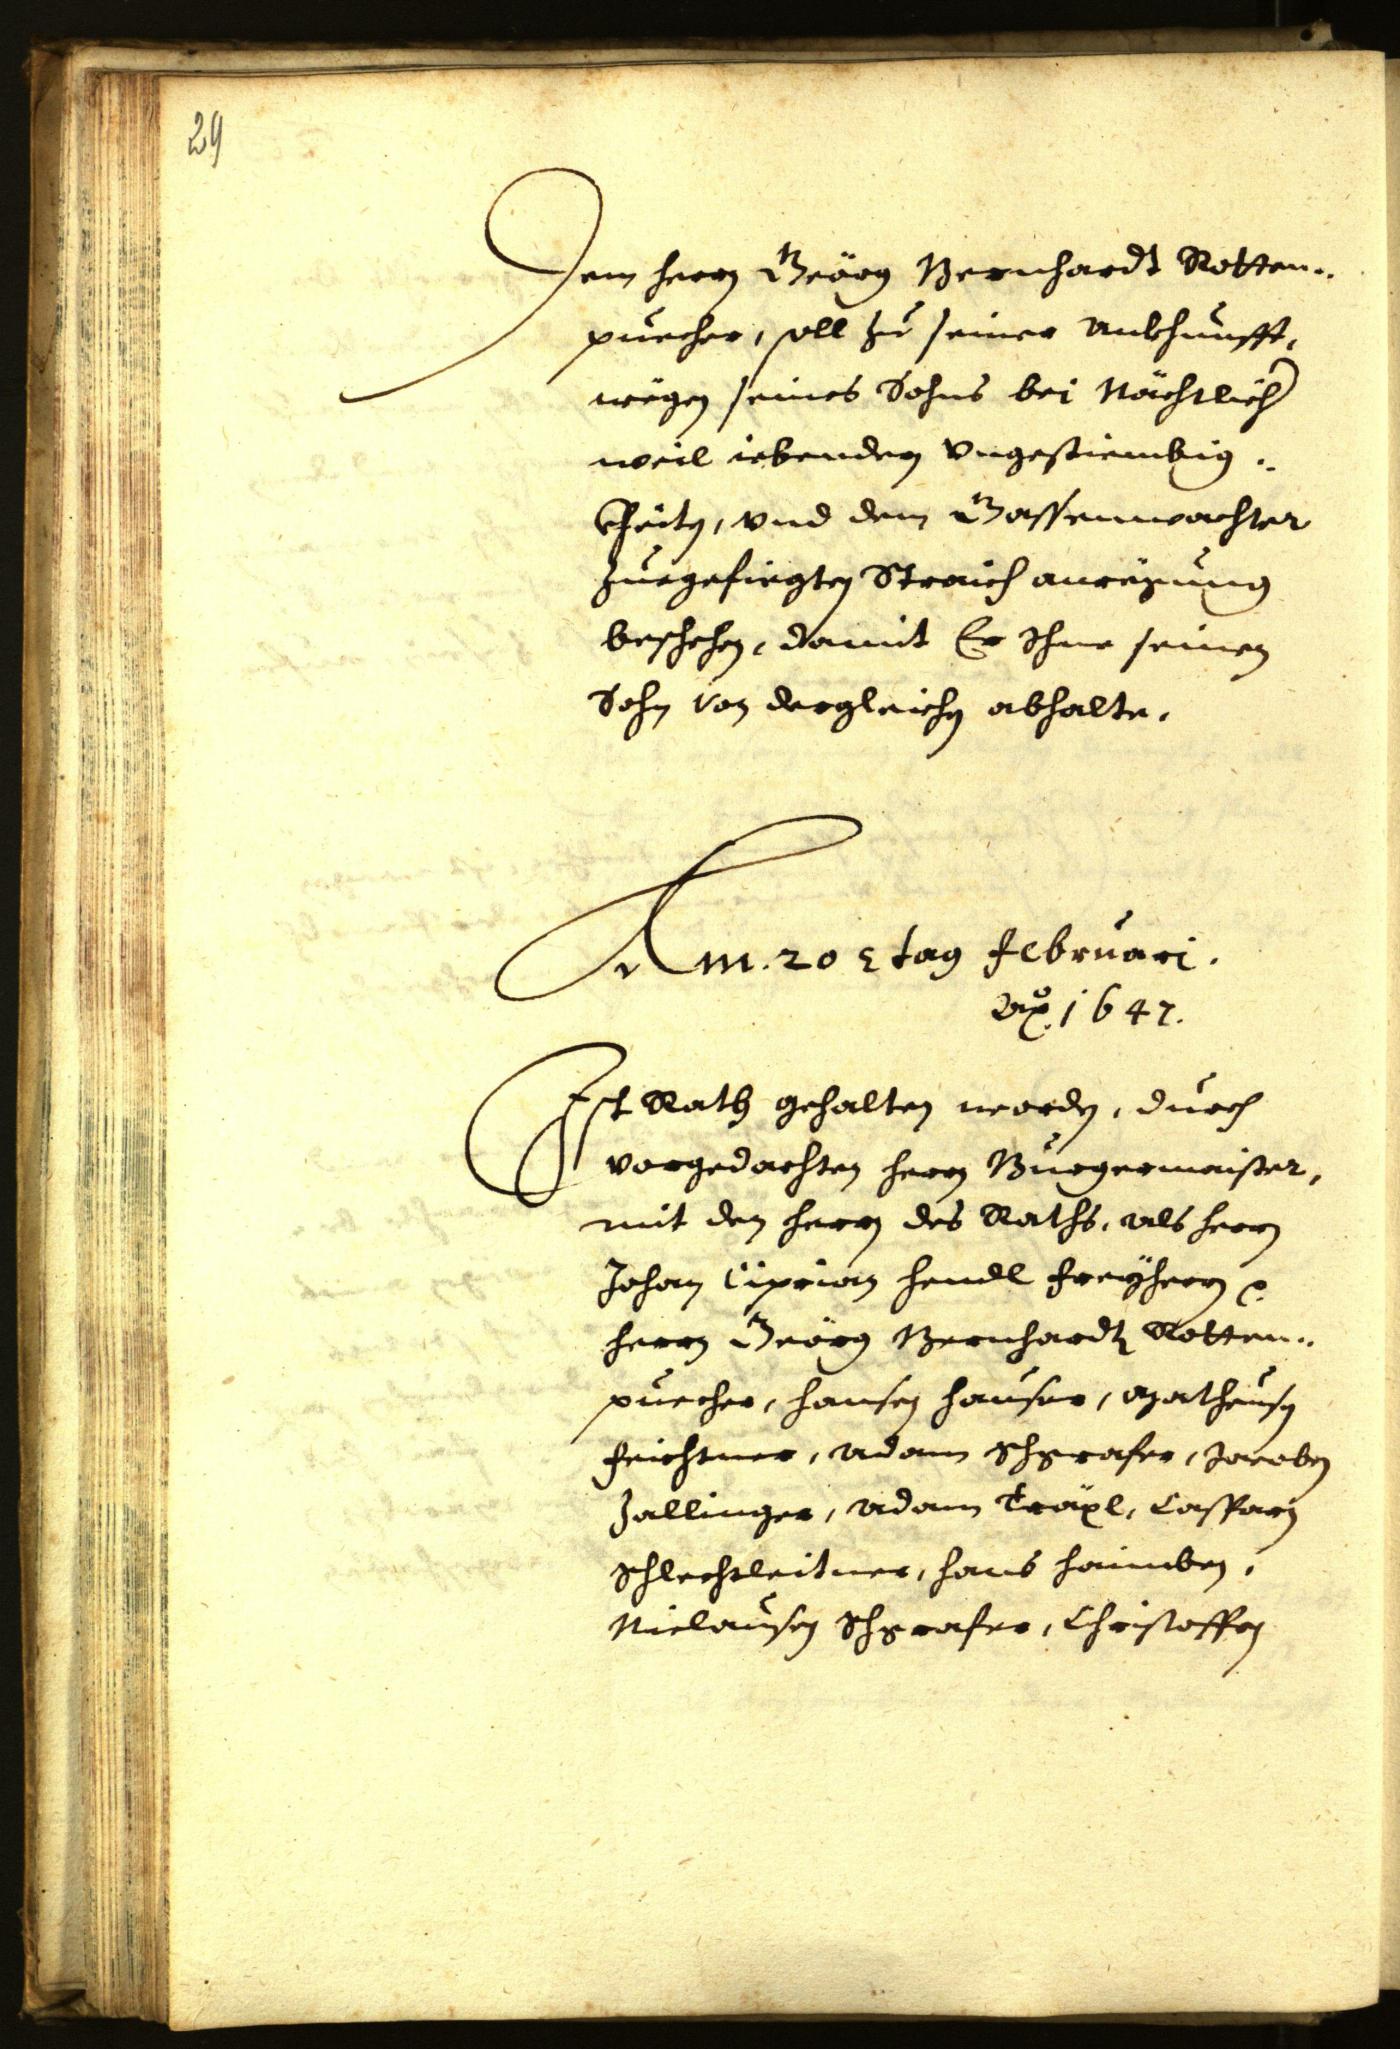 29
Dem herrn Geörg Bernhardt Rotten-
puecher, soll zu seiner ankhunfft,
wegen seines Sohns bei Nächtlicher
weil iebenden Vngestiembig-
kheiten, vnd dem Gassenwachter
zuegefiegten Straich anregung
beschehen, damit Er Ihme seinen
Sohn von dergleichen abhalte.
Am. 20 tag februarj.
Ao. 1647.
Ist Rath gehalten worden, durch
vorgedachten herrn Burgermaister,
mit den herrn des Raths, als herrn
Johan Ciprian hendl freyherrn
herrn Geörg Bernhardt Rotten-
puecher, hansen hauser, Matheusen
feichtner, Adam Schgrafer, Jacoben
Zallinger, Adam Träxl, Casparn
Schlechtleitner, hans haimben,
Niclausen Schgrafer, Christoffen